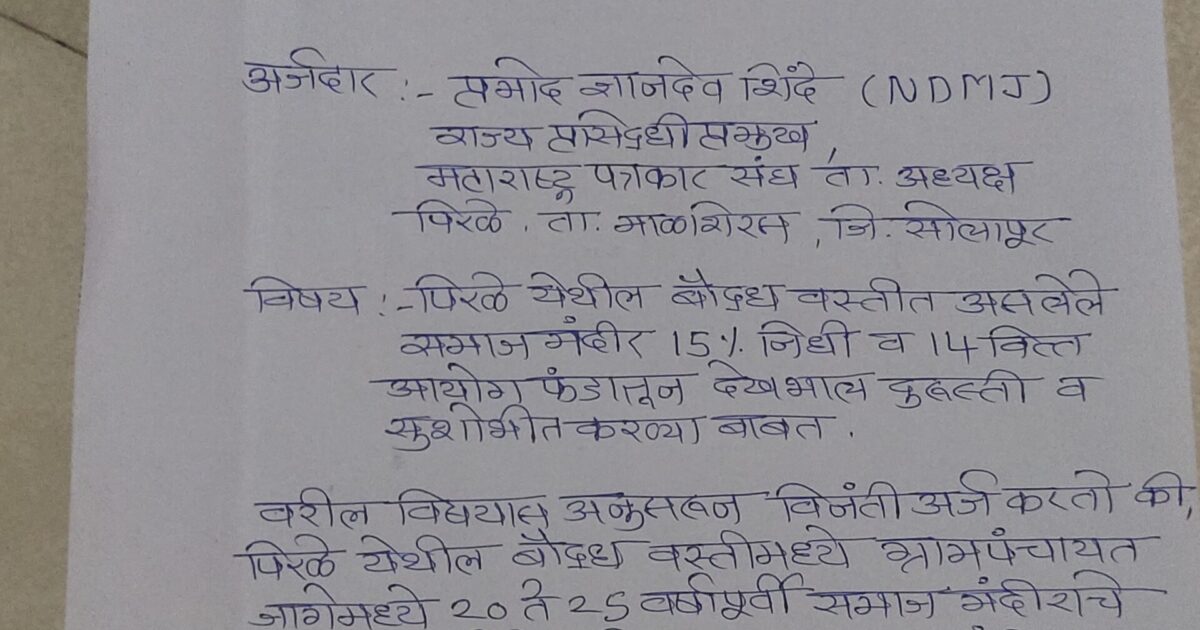 अर्जदार :- प्रमोद ज्ञानदेव शिंदे (NDMJ)
राज्य प्रसिद्धी प्रमुख,
महाराष्ट्र पत्रकार संघ ता. अध्यक्ष
पिरळे . ता. माळशिरस , जि. सोलापूर
विषय :- पिरळे येथील बौद्ध वस्तीत असलेले
समाज मंदीर 15% निधी व 14 वित्त
आयोग फंडातून देखभाल दुरुस्ती व
सुशोभीत करण्या बाबत .
वरील विषयास अनुसरून विनंती अर्ज करतो की,
पिरळे येथील बौद्ध वस्तीमध्ये ग्रामपंचायत
जागेमध्ये 20 ते 25 वर्षापूर्वी समाज मंदीराचे